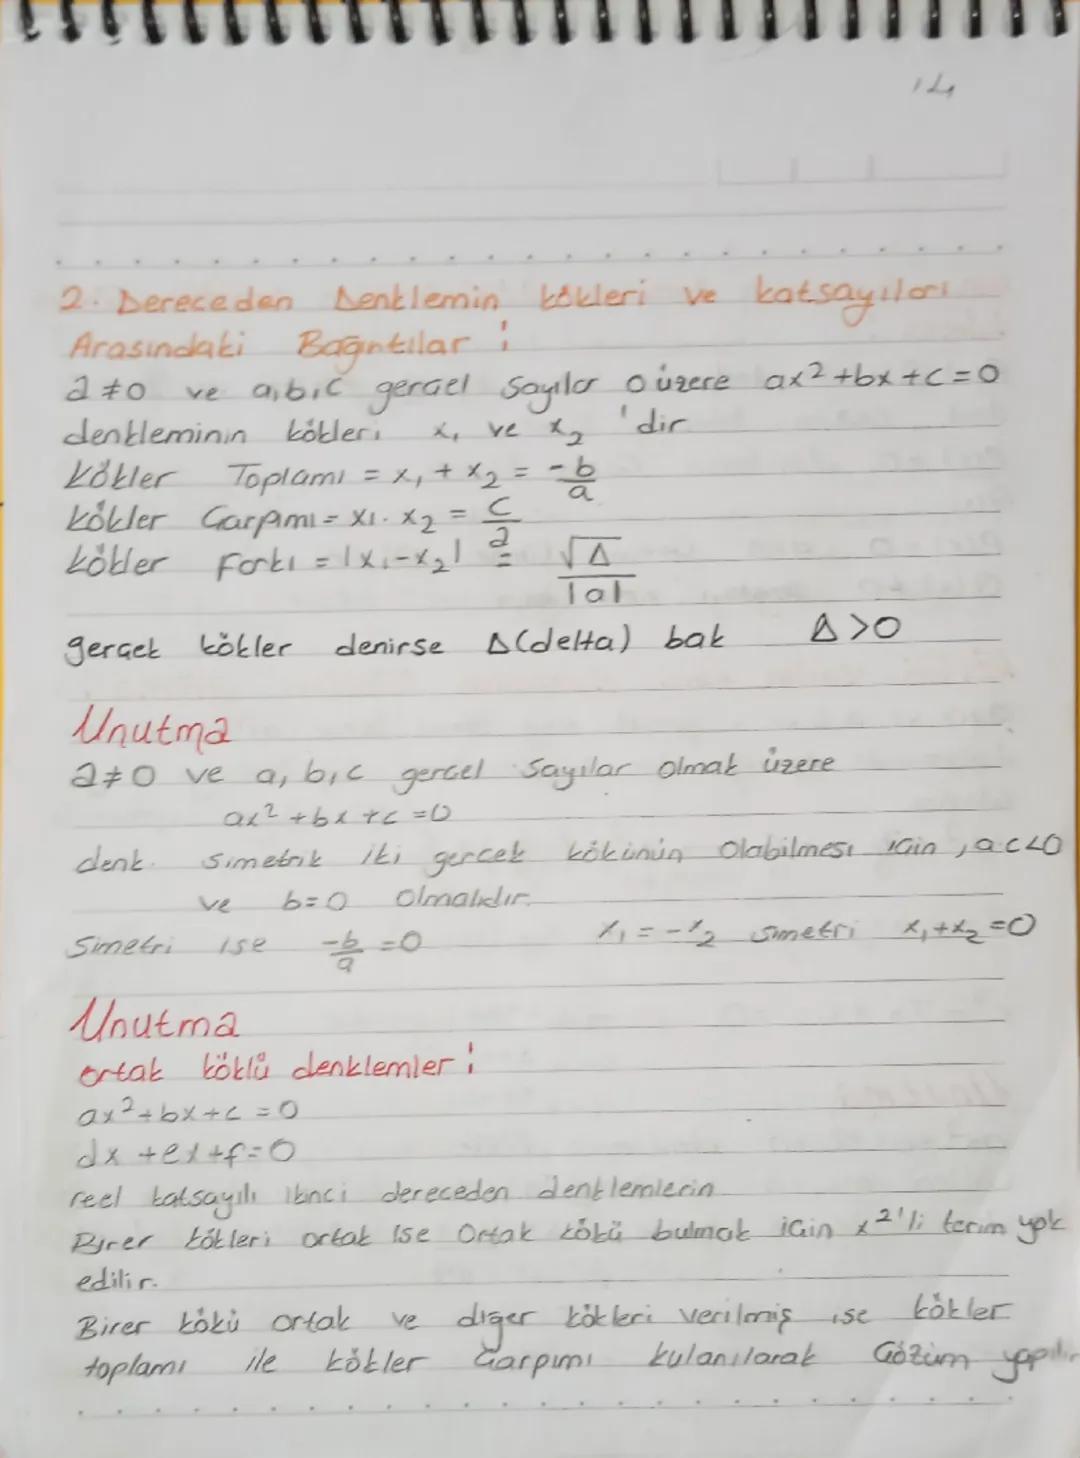 14
2. Dereceden Denklemin kökleri ve katsayıları
Arasındaki Bağıntılar :
a≠0 ve a,b,c gercel sayılar o üzere ax²+bx+c=0
denkleminin kökleri x₁ ve x₂ 'dir
Kökler Toplamı = x₁ + x₂ = -b/a
kökler Çarpımı = x₁ . x₂ = c/a
kökler Farkı = |x₁-x₂| = √Δ/|a|
gerçek kökler denirse Δ(delta) bak Δ>0
Unutma
a≠0 ve a, b, c gercel sayılar olmak üzere
ax²+bx+c=0
denk. simetrik iki gercek kökünün olabilmesi için , a.c<0
ve b=0 olmalıdır.
Simetri ise -b/a =0 x₁ = -x₂ simetri x₁+x₂=0
Unutma
ortak köklü denklemler :
ax²+bx+c=0
dx+ex+f=0
reel katsayılı ikinci dereceden denklemlerin
Birer kökleri ortak ise Ortak kökü bulmak için x²'li terim yok
edilir.
Birer kökü ortak ve diğer kökleri verilmiş ise kökler
toplamı ile kökler çarpımı kulanılarak Çözüm yapılır